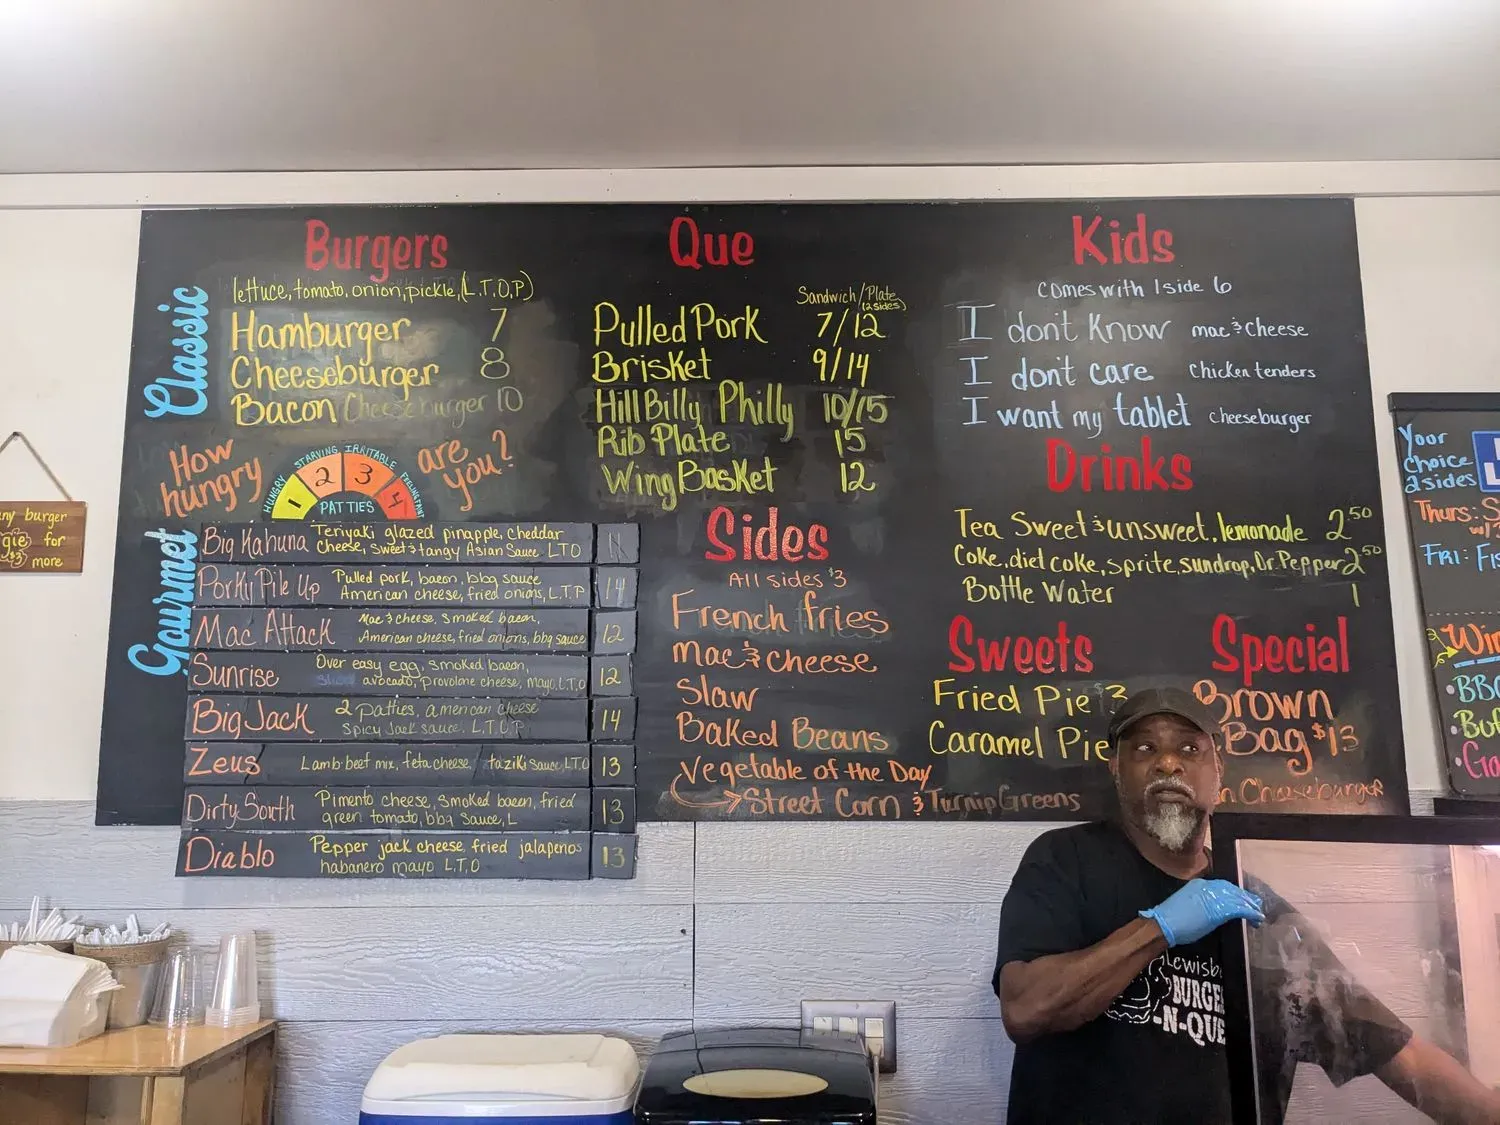 Burgers
Classic
lettuce, tomato, onion, pickle, (L.T.O.P)
Hamburger 7
Cheeseburger 8
Bacon Cheeseburger 10
How hungry are you?
HUNGRY STARVING IRRITABLE
1 2 3 4
PATTIES
Gourmet
Big Kahuna Teriyaki glazed pineapple, cheddar
cheese, sweet & tangy Asian Sauce LTO 11
Porky Pile Up Pulled pork, bacon, bbq sauce
American cheese, fried onions, L.T.P 14
Mac Attack Mac & cheese, smoked bacon,
American cheese, fried onions, bbq sauce 12
Sunrise Over easy egg, smoked bacon,
avocado, provolone cheese, mayo, L.T.O 12
Big Jack 2 patties, american cheese
spicy Jack sauce, L.T.O.P 14
Zeus Lamb-beef mix, feta cheese, taziki sauce, L.T.O 13
Dirty South Pimento cheese, smoked bacon, fried
green tomato, bbq sauce, L 13
Diablo Pepper jack cheese, fried jalapenos
habanero mayo L.T.O 13
Que
Sandwich/Plate
(2 sides)
Pulled Pork 7/12
Brisket 9/14
HillBilly Philly 10/15
Rib Plate 15
Wing Basket 12
Sides
All sides $3
French fries
mac & cheese
Slaw
Baked Beans
Vegetable of the Day
Street Corn & Turnip Greens
Kids
comes with 1 side 6
I don't know mac & cheese
I don't care chicken tenders
I want my tablet cheeseburger
Drinks
Tea Sweet & unsweet, lemonade 2.50
Coke, diet coke, sprite, sundrop, Dr. Pepper 2.50
Bottle Water 1
Sweets
Fried Pie $3
Caramel Pie
Special
Brown
Bag $13
Cheeseburger
burger
for
$3 more
Your
choice
2 sides
Thurs:
w/
FRI:
BURGE
-N-QUE